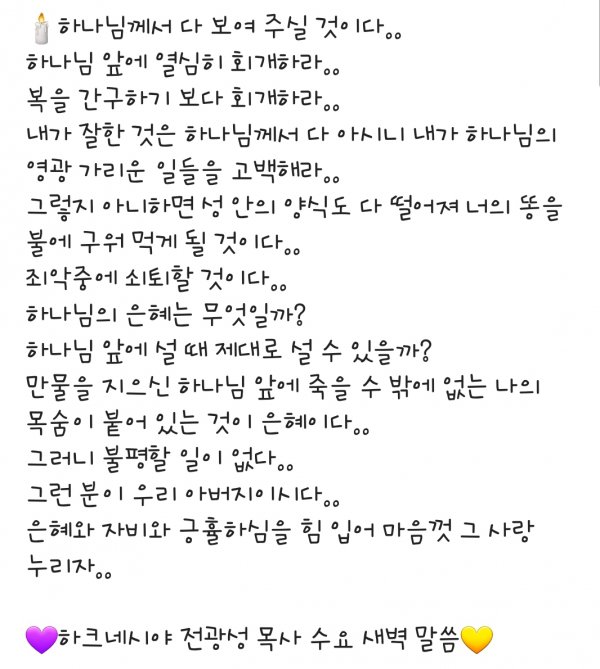 🕯️하나님께서 다 보여 주실 것이다。。
하나님 앞에 열심히 회개하라。。
복을 간구하기 보다 회개하라。。
내가 잘한 것은 하나님께서 다 아시니 내가 하나님의
영광 가리운 일들을 고백해라。。
그렇지 아니하면 성 안의 양식도 다 떨어져 너의 똥을
불에 구워 먹게 될 것이다。。
죄악중에 쇠퇴할 것이다。。
하나님의 은혜는 무엇일까?
하나님 앞에 설 때 제대로 설 수 있을까?
만물을 지으신 하나님 앞에 죽을 수 밖에 없는 나의
목숨이 붙어 있는 것이 은혜이다。。
그러니 불평할 일이 없다。。
그런 분이 우리 아버지이시다。。
은혜와 자비와 긍휼하심을 힘 입어 마음껏 그 사랑
누리자。。
💜하크네시야 전광성 목사 수요 새벽 말씀💛